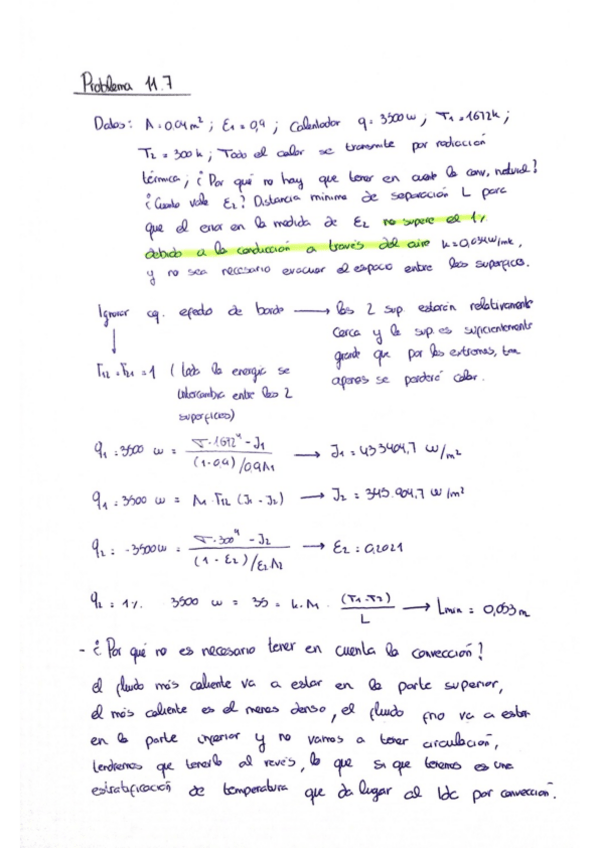 Problema 11.7
Datos: A=0,04m²; ε1=0,9; Calentador q=3500w; T1=1672k;
T2=300k; Todo el calor se transmite por radiación
térmica; ¿Por qué no hay que tener en cuenta la conv. natural?
¿Cuánto vale ε2? Distancia mínima de separación L para
que el error en la medida de ε2 no supere el 1%
debido a la conducción a través del aire k=0,054w/mk,
y no sea necesario evacuar el espacio entre las superfices.
Ignorar cq. efecto de borde → las 2 sup. estarán relativamente
cerca y la sup. es suficientemente
grande que por los extremos,
apenas se perderá calor.
F12=F21=1 (toda la energía se
intercambia entre las 2
superficies)
q1=3500 w = σ·1672⁴-J1 / (1-0,9)/0,9A1 → J1=433404,7 w/m²
q1=3500 w = A1·F12 (J1-J2) → J2=345.904,7 w/m²
q2=-3500w = σ·300⁴-J2 / (1-ε2)/ε2A2 → ε2=0,2021
3500 w = 35 = k·A1·(T1-T2)/L → Lmin=0,063m
- ¿Por qué no es necesario tener en cuenta la convección?
el fluido más caliente va a estar en la parte superior,
el más caliente es el menos denso, el fluido frio va a estar
en la parte inferior y no vamos a tener circulación,
tendremos que tenerlo al revés, lo que si que tenemos es una
estratificación de temperatura que da lugar al tdc por convección.